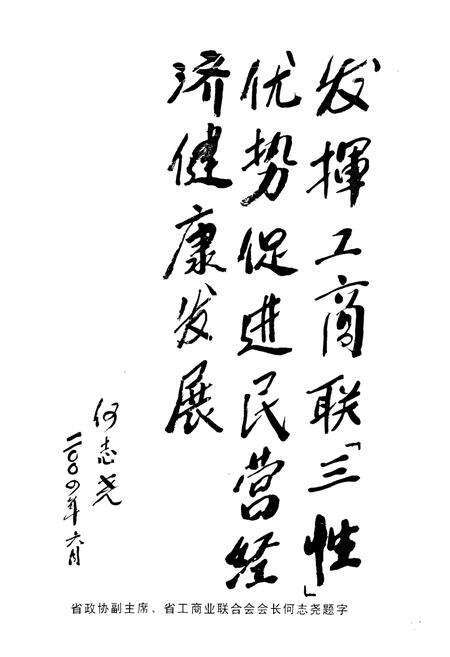 发挥工商联「三性」
优势促进民营经
济健康发展
何志尧
二〇〇四年六月
省政协副主席、省工商业联合会会长何志尧题字